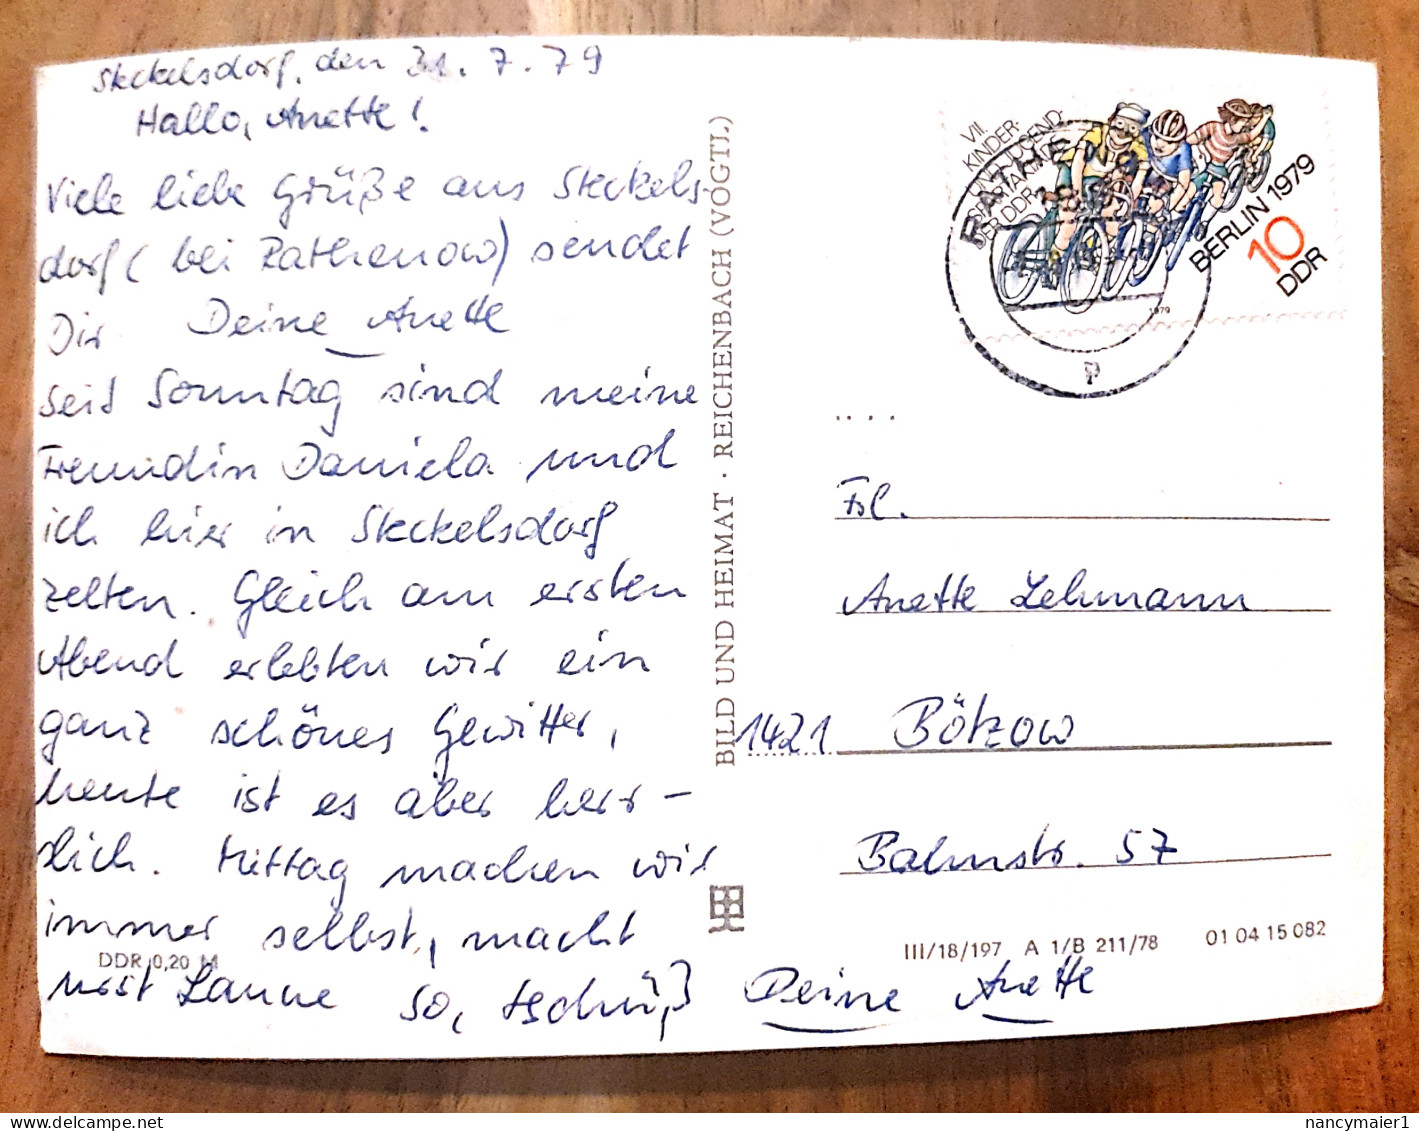 Steckelsdorf, den 31. 7. 79
Hallo, Anette!
Viele liebe Grüße aus Steckels
dorf ( bei Rathenow) sendet
Dir Deine Anette
Seit Sonntag sind meine
Freundin Daniela und
ich hier in Steckelsdorf
zelten. Gleich am ersten
Abend erlebten wir ein
ganz schönes Gewitter,
heute ist es aber herr-
lich. Mittag machen wir
immer selbst, macht
DDR 0,20 M
Laune so, tschüß Deine Anette
BILD UND HEIMAT · REICHENBACH (VOGTL.)
VII.
KINDER-
UND JUGEND-
SPARTAKIADE
DER DDR
BERLIN 1979
10
DDR
1979
Frl.
Anette Lehmann
1421 Bötzow
Bahnstr. 57
III/18/197 A 1/B 211/78 01 04 15 082
nancymaier1